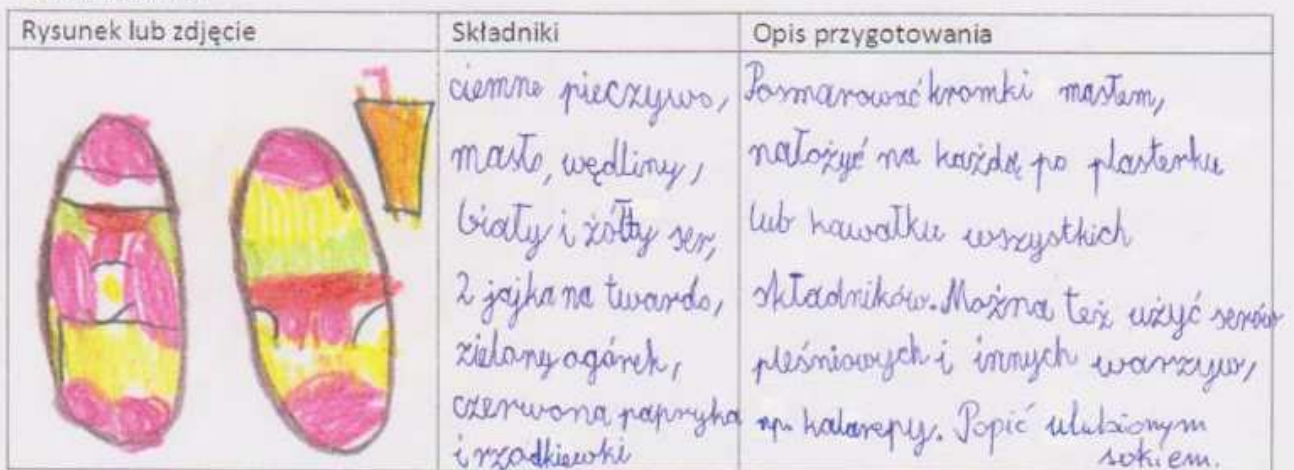 Rysunek lub zdjęcie
Składniki
Opis przygotowania
ciemne pieczywo,
masło, wędliny,
biały i żółty ser,
2 jajka na twardo,
zielony ogórek,
czerwona papryka
i rzodkiewki
Posmarować kromki masłem,
nałożyć na każdą po plasterku
lub kawałku wszystkich
składników. Można też użyć serów
pleśniowych i innych warzyw,
np. kalarepy. Popić ulubionym
sokiem.